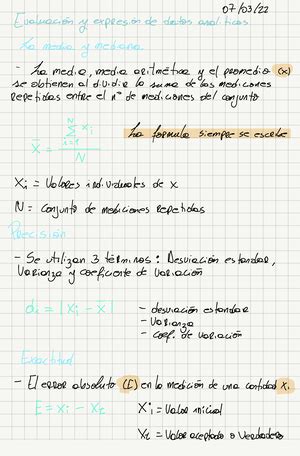 07/03/22
Evaluación y expresión de datos analíticos
La media y mediana
- La media, media aritmética y el promedio (x)
se obtienen al dividir la suma de las mediciones
repetidas entre el nº de mediciones del conjunto
x̄ = Σᵢ₌₁ᴺ xᵢ / N
La formula siempre se escribe
Xᵢ = Valores individuales de x
N = Conjunto de mediciones repetidas
Precisión
- Se utilizan 3 términos: Desviación estandar,
Varianza y coeficiente de variación
dᵢ = |xᵢ - x̄|
- desviación estandar
- varianza
- coef. de variación
Exactitud
- El error absoluto (E) en la medición de una cantidad xᵢ
E = xᵢ - xₜ
Xᵢ = Valor inicial
Xₜ = Valor aceptado o verdadero